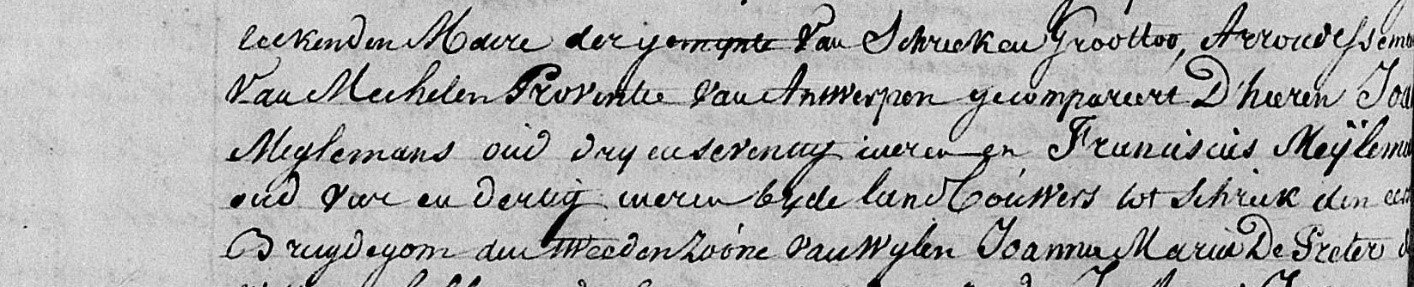 Maire der gemynte van Schriek en Grootloo, Arrondissem
van Mechelen Provintie van Antwerpen gecompareert D'heeren Joa
Meylemans oud dry en seventig jaeren en Franciscus Meÿlema
oud vier en dertig jaeren byde landbouwers tot Schriek den eers
Bruydegom den tweeden zoóne van wylen Joanna Maria De Preter